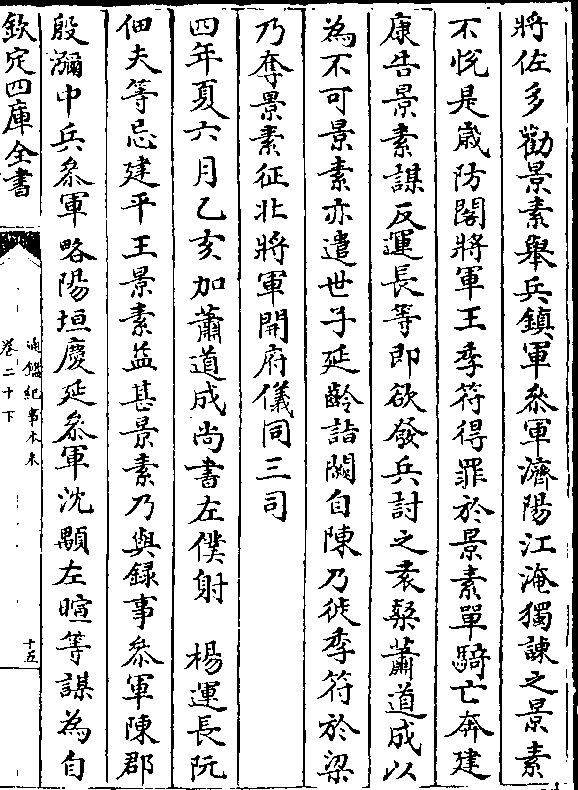 將佐多勸景素舉兵鎮軍叅軍濟陽江淹獨諫之景素
不悅是歳防閤將軍王季符得罪於景素單騎亡奔建
康告景素謀反運長等即欲發兵討之袁粲蕭道成以
為不可景素亦遣世子延齡詣闕自陳乃徙季符於梁
乃奪景素征北將軍開府儀同三司
四年夏六月乙亥加蕭道成尚書左僕射　楊運長阮
佃夫等忌建平王景素益甚景素乃與録事叅軍陳郡
殷濔中兵叅軍略陽垣慶延叅軍沈顒左暄等謀為自
欽定四庫全書
通鑑紀事本末
卷二十下
十五